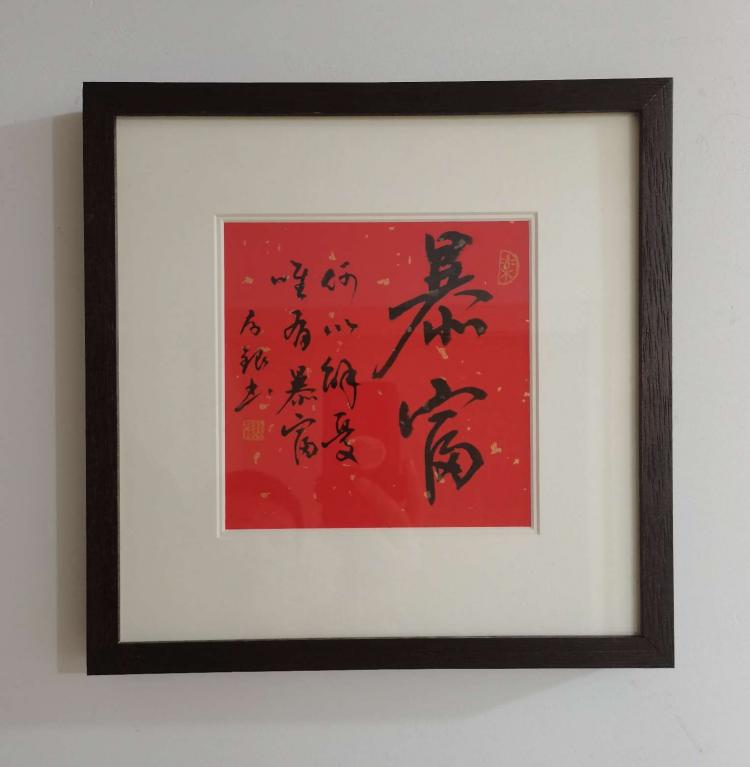 暴富
何以解憂
唯有暴富